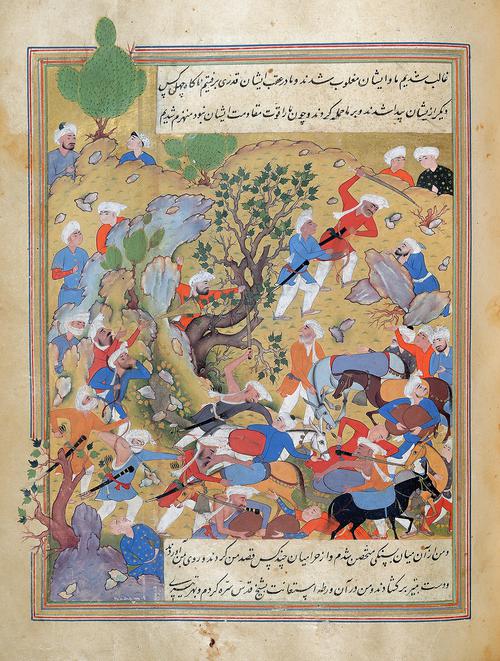 غالب شدیم ما و ایشان مغلوب شدند و ما در عقب ایشان قدری برفتیم ناکاه چهل کس
دیکر از ایشان پیدا شدند و بر ما حمله کردند و چون ما را قوت مقاومت ایشان نبود منهزم شدیم
و من از آن میان بسنکی متحصن شدم و از حرامیان چند کس قصد من کردند و روی بمن آوردند
و دست بتیر بر کشادند و من در آن ورطه استعانت بشیخ قدس سره کردم و